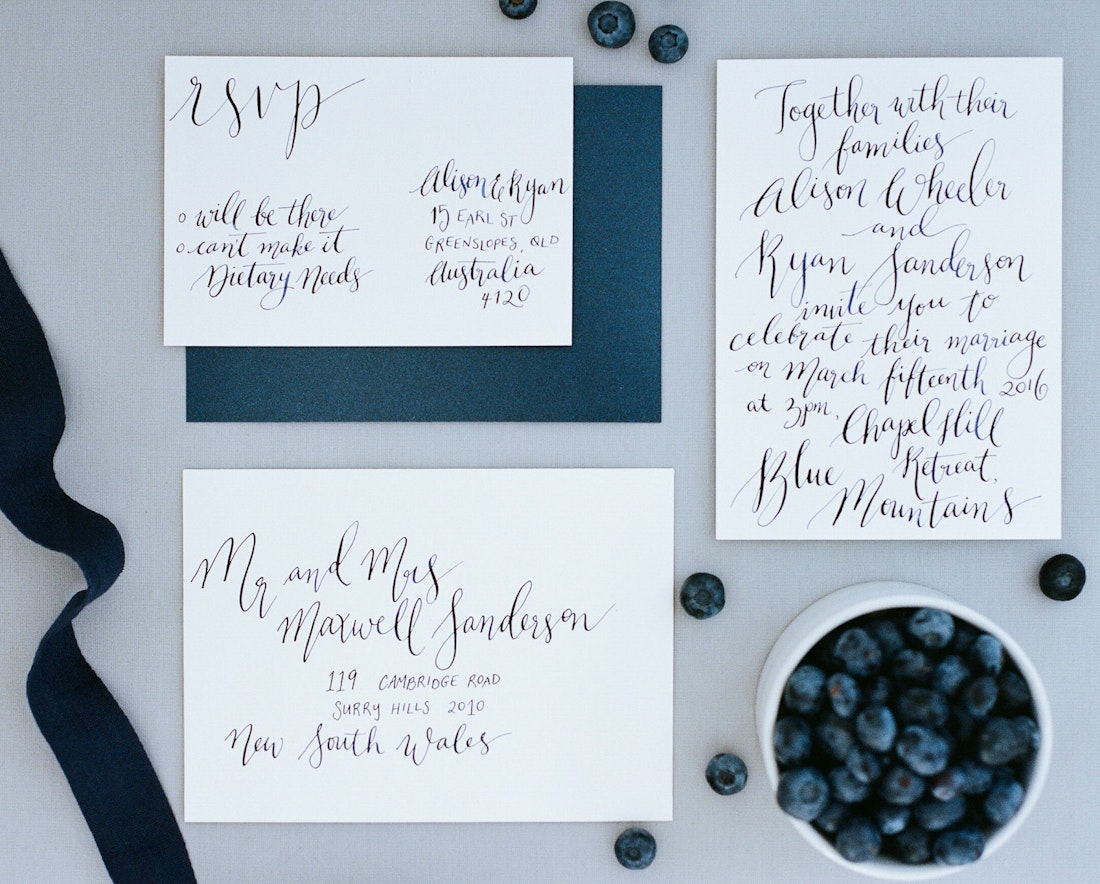 rsvp
o will be there
o can't make it
Dietary Needs
Alison & Ryan
15 EARL ST
GREENSLOPES, QLD
Australia
4120
Together with their
families
Alison Wheeler
and
Ryan Sanderson
invite you to
celebrate their marriage
on March fifteenth 2016
at 3pm, Chapel Hill
Retreat,
Blue
Mountains
Mr and Mrs
Maxwell Sanderson
119 CAMBRIDGE ROAD
SURRY HILLS 2010
New South Wales